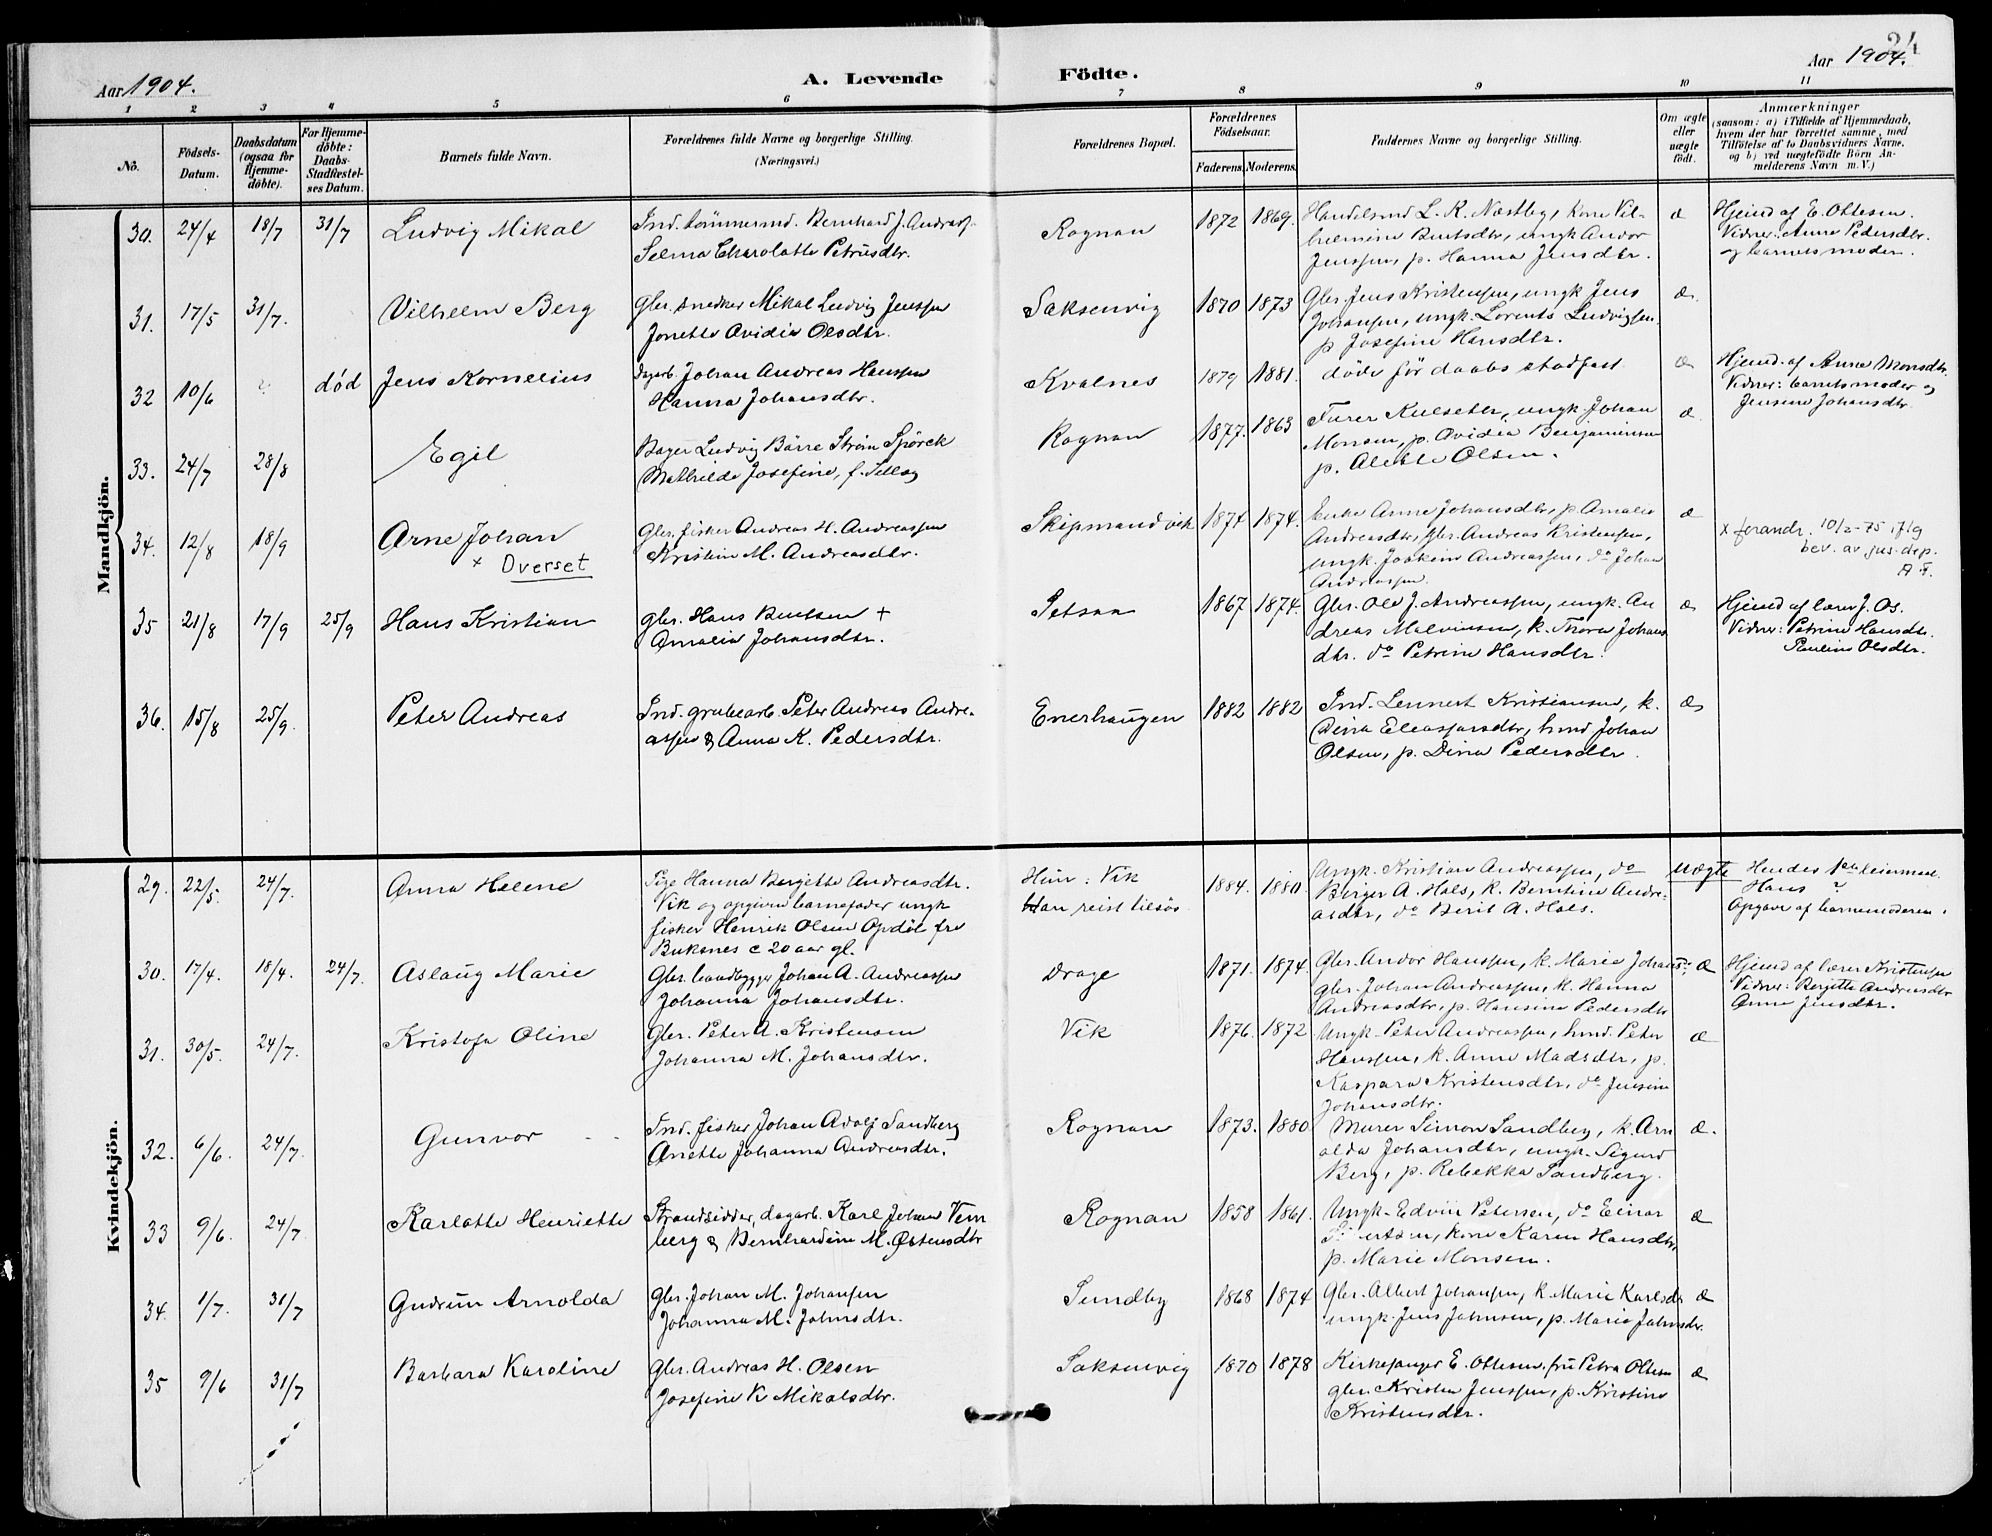 24
Aar 1904. A. Levende Födte. Aar 1904.
1 2 3 4 5 6 7 8 9 10 11
No. Födsels-Datum. Daabsdatum (ogsaa for Hjemmedöbte). For Hjemmedöbte: Daabs-Stadfæstelses Datum. Barnets fulde Navn. Forældrenes fulde Navne og borgerlige Stilling. (Næringsvei.) Forældrenes Bopæl. Forældrenes Födselsaar. Faderens. Moderens. Faddernes Navne og borgerlige Stilling. Om ægte eller uægte födt. Anmærkninger (saasom: a) i Tilfælde af Hjemmedaab, hvem der har forrettet samme, med Tilföielse af to Daabsvidners Navne, og b) ved uægtefödte Börn Anmelderens Navn m. V.)
Mandkjön.
30. 24/4 18/7 31/7 Ludvig Mikal
Ind. tömmermd. Bernhard J. Andreass.
Selma Charolatte Petrusdtr.
Rognan 1872 1869.
Handelsmd L. K. Næstby, kone Vil-
helmine Bentsdtr, ungk Andor
Jenssen, p. Hanna Jensdtr.
æ
Hjemd af E. Ottesen.
Vidner: Anne Pedersdtr.
og barnets moder.
31. 17/5 31/7. Vilhelm Berg
Gbr. snedker Mikal Ludvig Jenssen
Jonette Ovidia Olsdtr.
Saksenvig 1870 1873
Gbr. Jens Kristensen, ungk Jens
Johansen, ungk. Lorents Ludvigsen,
p Josefine Hansdtr.
æ
32 10/6 død Jens Kornelius
Dagarb. Johan Andreas Hanssen
Hanna Johansdtr.
Kvalnes 1879 1881.
døde før daabs stadfæst.
æ
Hjemd. af Anne Monsdtr.
Vidner: barnets moder og
Jensine Johansdtr.
33. 24/7 28/8 Egil
Bager Ludvig Börre Ström Spörck
Mathilde Josefine, f. Selboe
Rognan 1877. 1863
Furer Kulseth, ungk. Johan
Monsen, p. Ovidia Benjaminsen
p. Alette Olsen.
æ
34. 12/8 18/9 Arne Johan
x Overset
Gbr. fisker Andreas H. Andreassen
Kristine M. Andreasdtr.
Skipmandvik 1874 1874.
Enke Anne Johansdtr, p Amalie
Andreasdtr, gbr. Andreas Kristensen,
ungk. Joakim Andreassen, do Johan
Andreassen.
æ
x forandr. 10/2-75 iflg
bev. av jus.dep.
A F.
35 21/8 17/9 25/9 Hans Kristian
gbr. Hans Bentsen +
Amalia Johansdtr.
Setsaa 1867 1874.
Gbr. Ole J. Andreassen, ungk. An
dreas Malvinsen, k. Thora Johans
dtr. do Petrine Hansdtr.
æ
Hjemd af lærer J. Os.
Vidner: Petrine Hansdtr.
Pauline Olsdtr.
36. 15/8 25/9. Peter Andreas
Ind. grubearb. Peter Andreas Andre-
assen & Anna K. Pedersdtr.
Enerhaugen 1882 1882
Ind. Lennert Kristiansen, k.
Dina Eleasarsdtr, hmd Johan
Olsen, p. Dina Pedersdtr.
æ
Kvindekjön.
29. 22/5 24/7. Anna Helene
Pige Hanna Bergette Andreasdtr.
Vik og opgiven barnefader ungk
fisker Henrik Olsen Opdöl fra
Buksnes c 20 aar gl.
Hun: Vik
Han reist tilsøs.
1884. 1880.
Ungk. Kristian Andreassen, do
Birger A. Hals, k. Berntine Andre-
asdtr, do Berit A. Hals.
uægte
Hendes 1ste leiermaal.
Hans ?
Opgave af barnemoderen.
30. 17/4. 18/4. 24/7. Aslaug Marie
Gbr. baadbygger Johan A. Andreassen
Johanna Johansdtr.
Drage 1871. 1874.
Gbr. Andor Hanssen, k. Marie Johans-,
gbr. Johan Andreassen, k. Hanna
Andreasdtr, p. Hansine Pedersdtr
æ
Hjemd af lærer Kristensen
Vidner: Bergette Andreasdtr
Anne Jensdtr.
31. 30/5. 24/7. Kristofa Oline
Gbr. Peter A. Kristensen
Johanna M. Johansdtr.
Vik 1876. 1872
Ungk. Peter Andreassen, hmd. Peter
Hanssen, k. Anne Madsdtr, p.
Kaspara Kristensdtr, do Jensine
Johansdtr.
æ
32. 6/6. 24/7. Gunvor
Ind. fisker Johan Adolf Sandberg
Anette Johanna Andreasdtr.
Rognan 1873. 1880
Murer Simon Sandberg, k. Arn
olda Johansdtr, ungk. Sigurd
Berg, p. Rebekka Sandberg.
æ.
33 9/6. 24/7. Karlotte Henriette
Strandsidder, dagarb. Karl Johan Vem
berg & Bernhardine M. Østensdtr
Rognan 1858 1861.
Ungk. Edvin Petersen, do Einar
kone Karen Hansdtr,
p. Marie Monsen.
æ
34. 1/7. 31/7 Gudrun Arnolda
gbr. Johan M. Johansen
Johanna M. Jahnsdtr.
Sundby 1868 1874
Gbr. Albert Johansen, k. Marie Karlsdtr
ungk. Jens Jahnsen, p. Marie Jahnsdtr.
æ
35 9/6 31/7 Barbara Karoline
Gbr. Andreas H. Olsen
Josefine K Mikalsdtr.
Saksenvig 1870 1878
Kirkesanger E. Ottesen, fru Petra Ottesen
gbr. Kristen Jenssen, p. Kristine
Kristensdtr.
æ